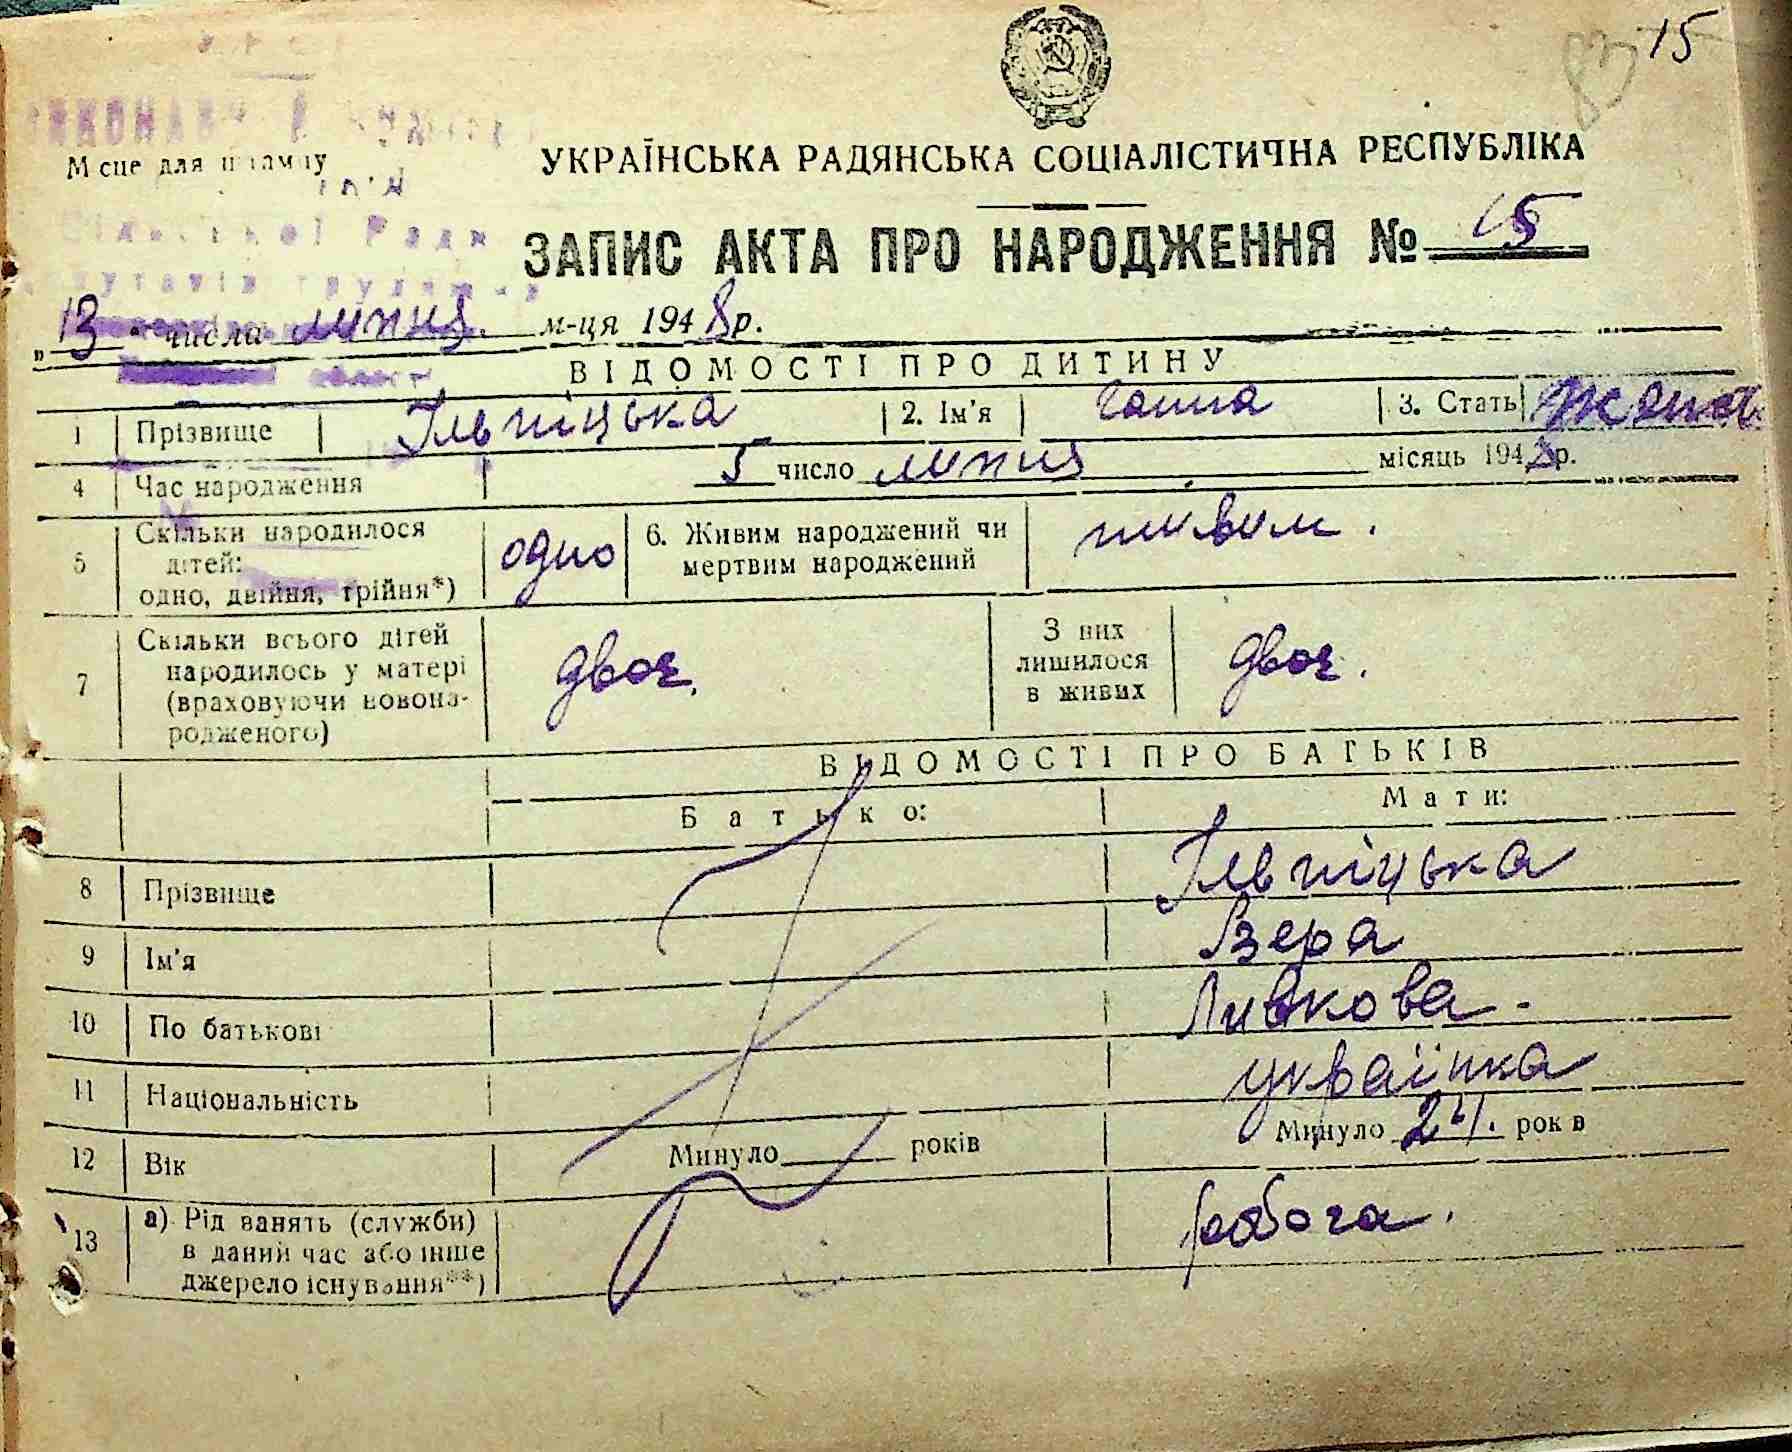 15
83
Місце для штампу
УКРАЇНСЬКА РАДЯНСЬКА СОЦІАЛІСТИЧНА РЕСПУБЛІКА
ЗАПИС АКТА ПРО НАРОДЖЕННЯ № 15
„13" числа липня м-ця 1948 р.
ВІДОМОСТІ ПРО ДИТИНУ
1 Прізвище Ільніцька 2. Ім'я Ганна 3. Стать
4 Час народження 5 число липня місяць 1948 р.
5 Скільки народилося дітей: одно, двійня, трійня*) одно 6. Живим народжений чи мертвим народжений живим.
7 Скільки всього дітей народилось у матері (враховуючи новонародженого) двоє. З них лишилося в живих двоє.
ВІДОМОСТІ ПРО БАТЬКІВ
Батько: Мати:
8 Прізвище Ільніцька
9 Ім'я Вера
10 По батькові
11 Національність українка
12 Вік Минуло років Минуло 24. років
13 а) Рід занять (служби) в даний час або інше джерело існування**) робота.